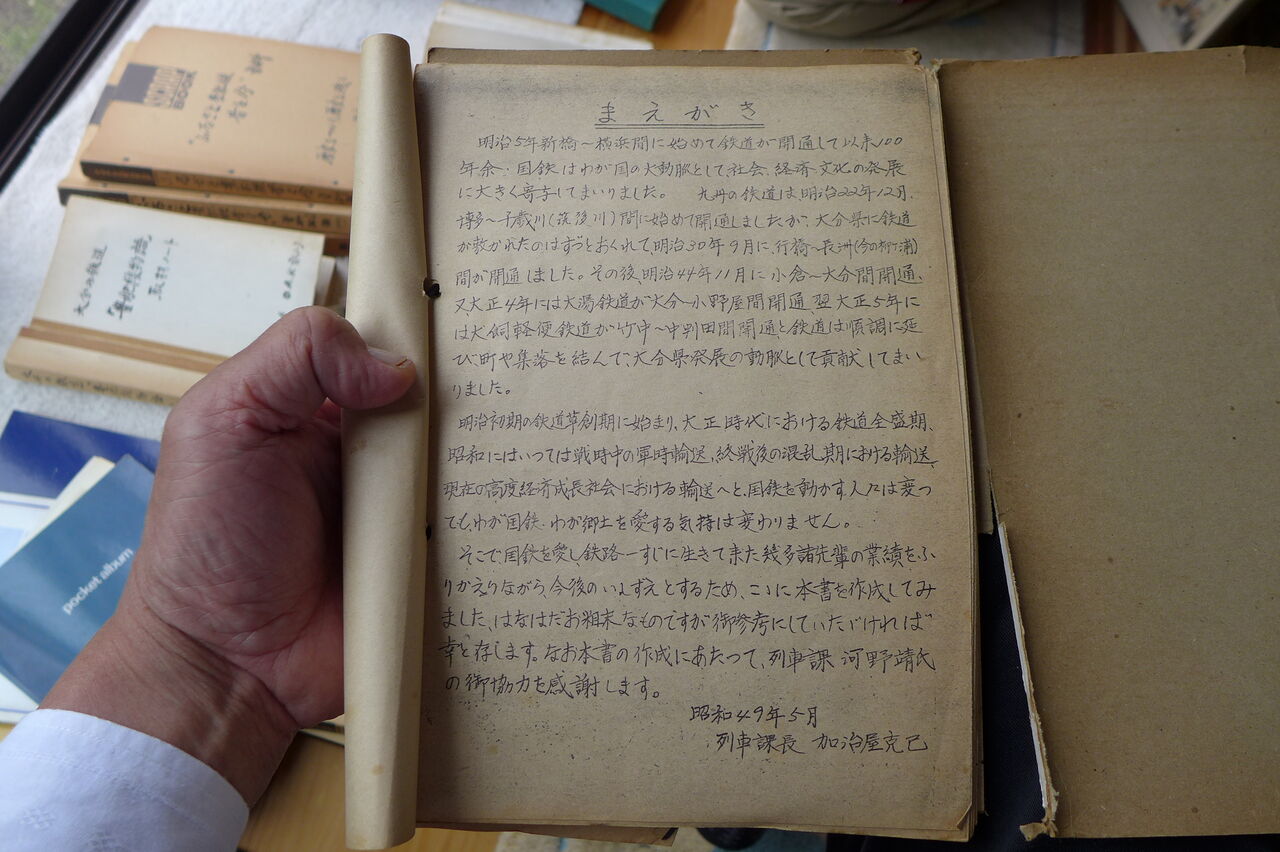 まえがき
明治5年新橋～横浜間に始めて鉄道が開通して以来100
年余、国鉄はわが国の大動脈として社会、経済、文化の発展
に大きく寄与してまいりました。 九州の鉄道は、明治22年12月、
博多～千歳川(筑後川)間に始めて開通しましたが、大分県に鉄道
が敷かれたのはずっとおくれて、明治30年9月に、行橋～長洲(今の柳ヶ浦)
間が開通しました。その後、明治44年11月に小倉～大分間開通、
又大正4年には大湯鉄道が大分～小野屋間開通、翌大正5年に
は犬飼軽便鉄道が竹中～中判田間開通と鉄道は順調に延
び、町や集落を結んで、大分県発展の動脈として貢献してまい
りました。
明治初期の鉄道草創期に始まり、大正時代における鉄道全盛期、
昭和にはいつては戦時中の軍時輸送、終戦後の混乱期における輸送、
現在の高度経済成長社会における輸送へと、国鉄を動かす人々は変つ
ても、わが国鉄、わが郷土を愛する気持は変わりません。
そこで、国鉄を愛し鉄路一すじに生きて来た幾多諸先輩の業績をふ
りかえりながら、今後のいしずえとするため、ここに本書を作成してみ
ました、はなはだお粗末なものですが御参考にしていただければ
幸と存します。なお本書の作成にあたつて、列車課 河野靖氏
の御協力を感謝します。
昭和49年5月
列車課長 加治屋克己
pocket album
大分の鉄道
取材ノート